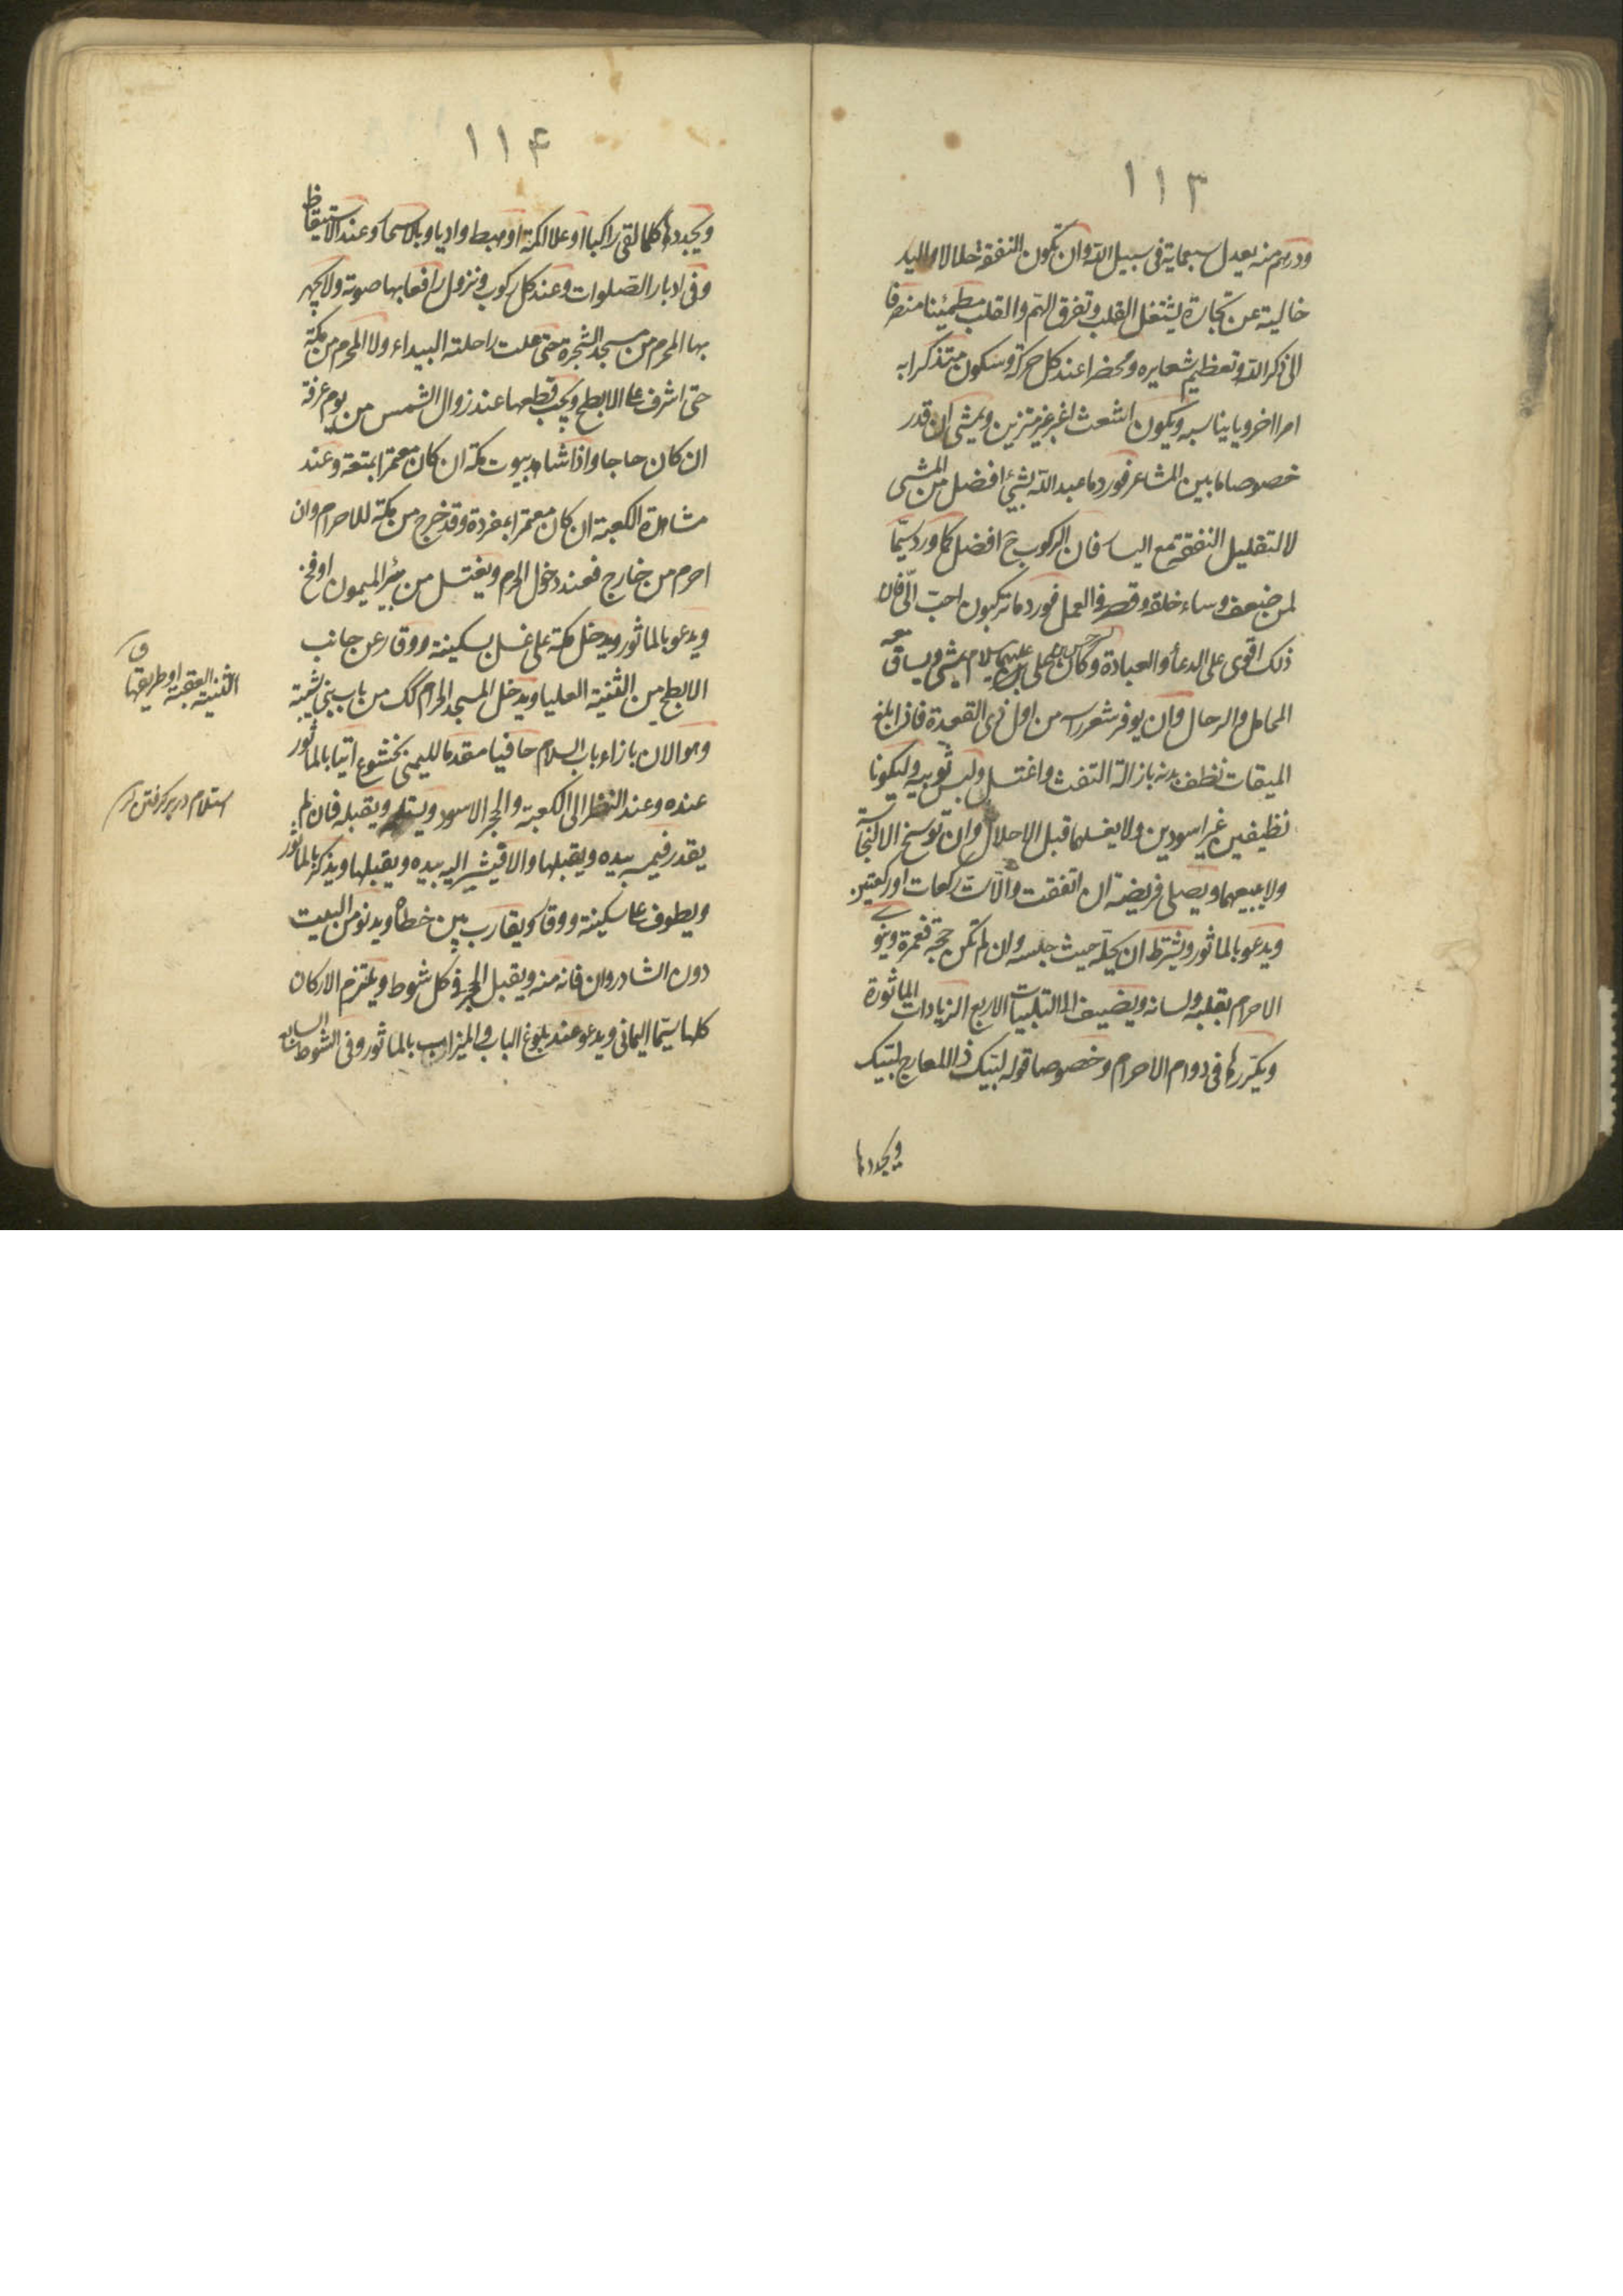 ١١٣
ودرهم منه يعدل سبعماية فى سبيل الله وان تكون النفقة حلالا واليد
خالية عن تجارة يشتغل القلب وتفرق الهم والقلب مطمئنا منصرفا
الى ذكر الله وتعظيم شعايره ومحضرا عند كل حركة وسكون متذكرا به
امرا اخرويا يناسبه ويكون اشعث اغبر غير متزين ويمشى ان قدر
خصوصا ما بين المشاعر فورد ما عبد الله بشئ افضل من المشى
لا لتقليل النفقة مع اليسار فان الركوب ح افضل كما ورد سيما
لمن ضعف وساء خلقه وقصر فى العمل فورد ما تركبون احب الى فان
ذلك اقوى على الدعاء والعبادة وكان الحسن بن على عليهما السلام يمشى ويساق معه
المحامل والرحال وان يوفر شعر راسه من اول ذى القعدة فاذا بلغ
الميقات نظف بدنه بازالة التفث واغتسل ولبس ثوبيه وليكونا
نظيفين غير اسودين ولا يغسلهما قبل الاحلال وان توسخ الا لنجاسة
ولا يبيعهما ويصلى فريضة ان اتفقت والا ست ركعات او ركعتين
ويدعو بالماثور ويشترط ان يحله حيث حبسه وان لم تكن حجة فعمرة وينوى
الاحرام بقلبه ولسانه ويضيف الى التلبيات الاربع الزيادات الماثورة
ويكررها فى دوام الاحرام وخصوصا قوله لبيك ذا المعارج لبيك
ويجددها
١١۴
ويجددها كلما لقى راكبا او علا اكمة او هبط واديا وبالاسحار وعند الاستيقاظ
وفى ادبار الصلوات وعند كل ركوب ونزول رافعا بها صوته ولا يجهر
بها المحرم من مسجد الشجرة حتى علت راحلته البيداء ولا المحرم من مكة
حتى اشرف على الابطح ويجب قطعها عند زوال الشمس من يوم عرفة
ان كان حاجا واذا شاهد بيوت مكة ان كان معتمرا بمتعة وعند
مشاهدة الكعبة ان كان معتمرا بمفردة وقد خرج من مكة للاحرام وان
احرم من خارج فعند دخول الحرم ويغتسل من بئر الميمون او فخ
ويدعو بالماثور ويدخل مكة على غسل بسكينة ووقار عن جانب
الابطح من الثنية العليا ويدخل المسجد الحرام كك من باب بنى شيبة
وهو الان بازاء باب السلام حافيا مقدما لليمنى بخشوع اتيا بالماثور
عنده وعند النظر الى الكعبة والحجر الاسود ويستلمه ويقبله فان لم
يقدر فيمسه بيده ويقبلها والا فيشير اليه بيده ويقبلها ويذكر بالماثور
ويطوف على سكينة ووقار ويقارب بين خطاه ويدنو من البيت
دون الشاذروان فانه منه ويقبل الحجر فى كل شوط ويلتزم الاركان
كلها سيما اليمانى ويدعو عند بلوغ الباب والميزاب بالماثور وفى الشوط السابع
الثنية العقبة او طريقها
ق
استلام دربر كرفتن